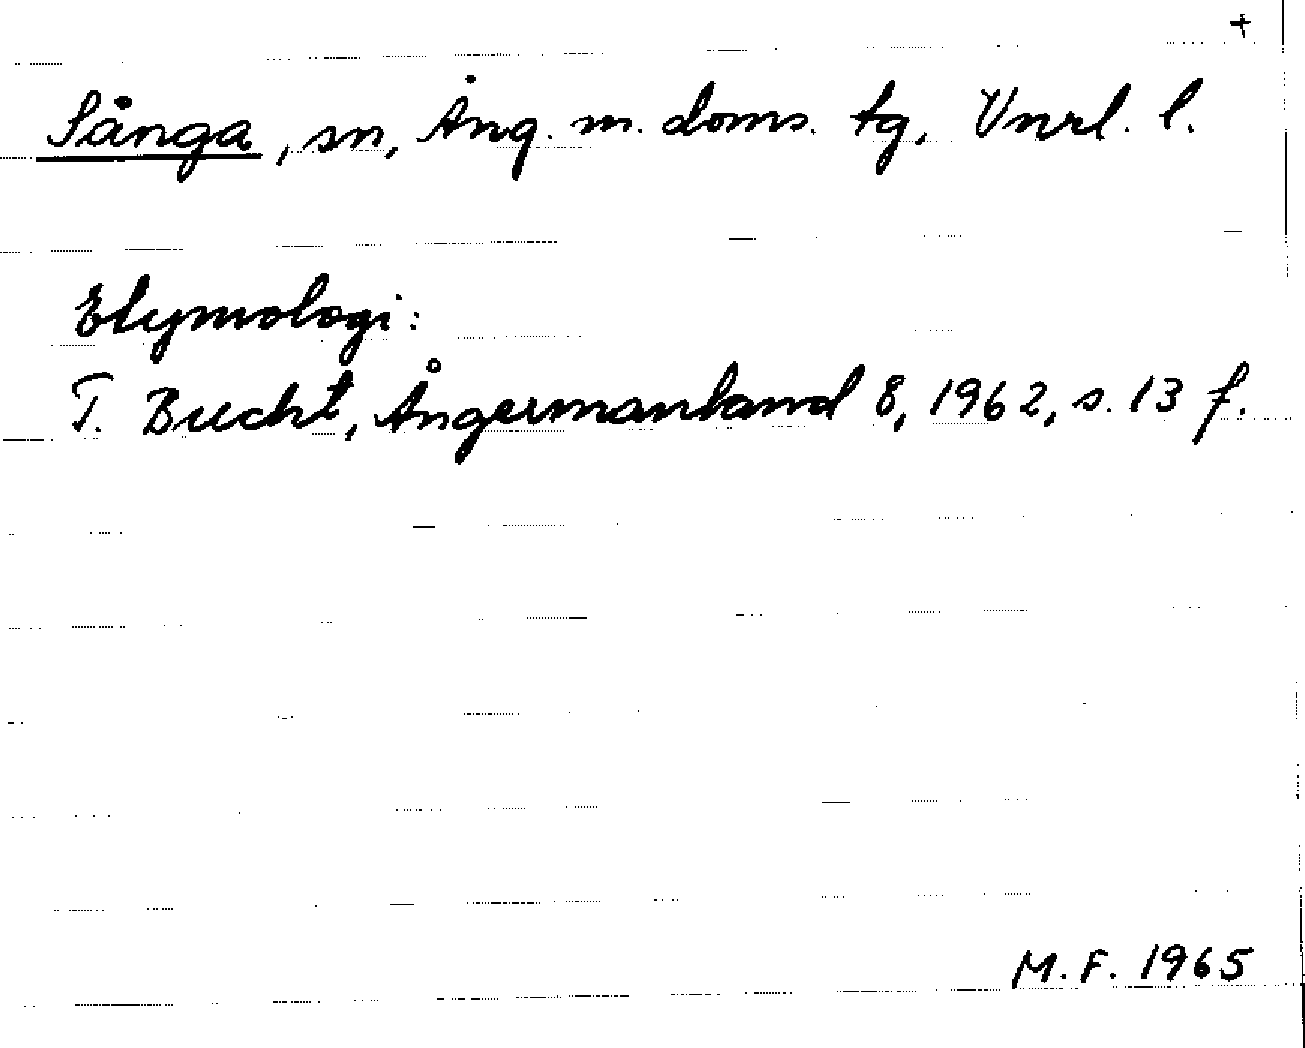 +
Sånga, sn, Ång. m. doms. tg, Vnrl. l.
Etymologi:
T. Bucht, Ångermanland 8, 1962, s. 13 f.
M. F. 1965